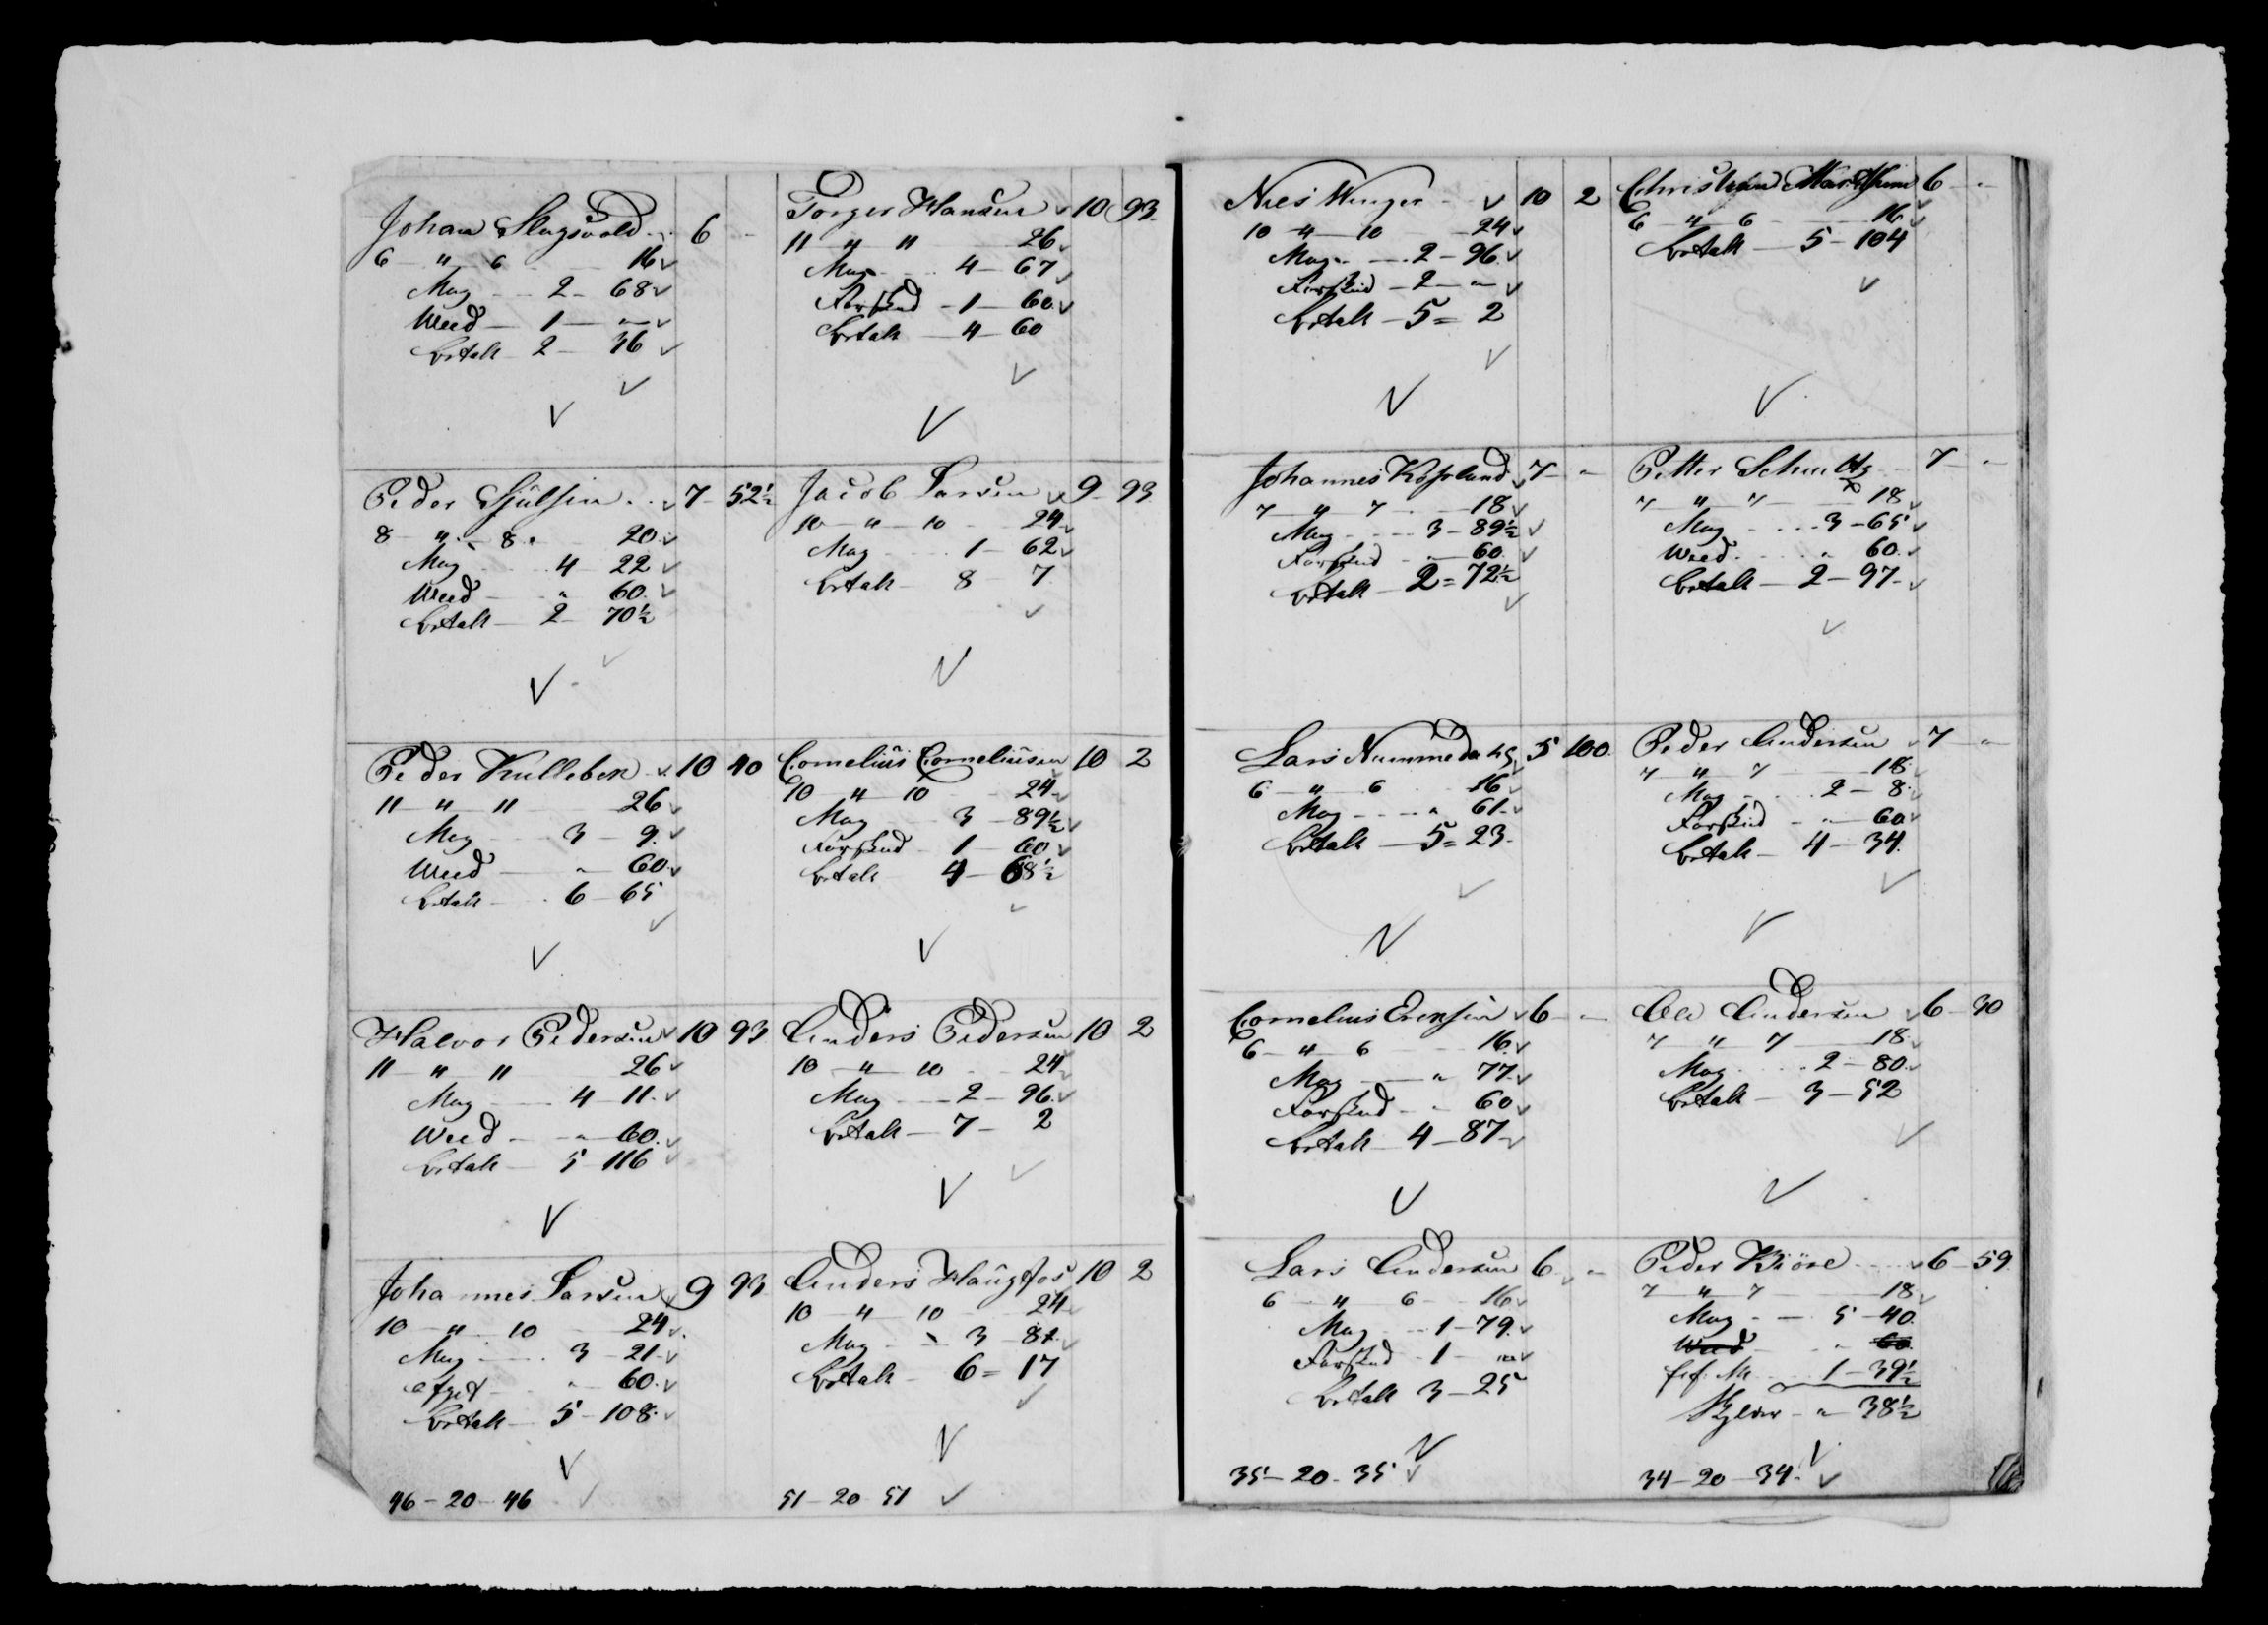 Johan Slugsvold 6 -
6 " 6 16
Mag 2 - 68
Weed 1 - "
betalt 2 - 36
Peder Hjulsin 7 - 52½
8 " 8 20
Mag 4 22
Weed " 60
betalt 2 - 70½
Peder Kullebek 10 40
11 " 11 26
Mag 3 9
Weed " 60
betalt 6 - 65
Halvor Pedersen 10 93
11 " 11 26
Mag 4 - 11
Weed " 60
betalt 5 116
Johannes Larsen 9 93
10 " 10 24
Mag 3 - 21
afgift " 60
betalt 5 - 108
46 - 20 - 46
Torger Hansen 10 93
11 " 11 26
Mag 4 - 67
Forskud 1 - 60
betalt 4 - 60
Jacob Larsen 9 - 93
10 " 10 24
Mag 1 - 62
betalt 8 7
Cornelius Corneliusen 10 2
10 " 10 24
Mag 3 - 89½
Forskud 1 - 60
betalt 4 - 68½
Anders Pedersen 10 2
10 " 10 24
Mag 2 - 96
betalt 7 - 2
Anders Haugfos 10 2
10 " 10 24
Mag 3 - 81
betalt 6 = 17
51 - 20 51
Niels Winger 10 2
10 " 10 24
Mag 2 - 96
Forskud 2 - "
betalt 5 = 2
Johannes Kopland 7 "
7 " 7 18
Mag 3 - 89½
Forskud " 60
betalt 2 = 72½
Lars Nummedals 5 100
6 " 6 16
Mag " 61
betalt 5 = 23
Cornelius Eriksen 6 "
6 " 6 16
Mag " 77
Forskud " 60
betalt 4 - 87
Lars Andersen 6 "
6 " 6 16
Mag 1 - 79
Forskud 1 - "
betalt 3 - 25
35 - 20 - 35
Christian 6 "
6 " 6 16
betalt 5 - 104
Petter Schultz 7 "
7 " 7 18
Mag 3 - 65
Weed " 60
betalt 2 - 97
Peder Andersen 7 "
7 " 7 18
Mag 2 - 8
Forskud " 60
betalt 4 - 34
Ole Andersen 6 - 30
7 " 7 18
Mag 2 - 80
betalt 3 - 52
Peder Kiöre 6 - 59
7 " 7 18
Mag 5 - 40
Weed " 60
1 - 39½
Skylder " 38½
34 - 20 - 34